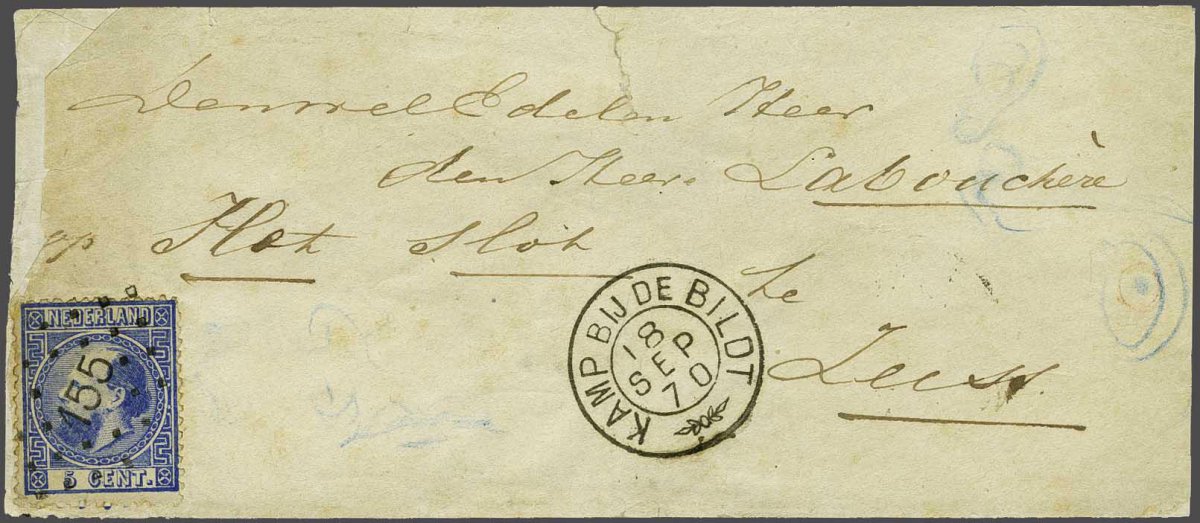 Den wel Edelen Heer
den Heer Labouchère
op Het Slot te
Zeist
NEDERLAND
155
5 CENT.
KAMP BIJ DE BILDT
18
SEP
70